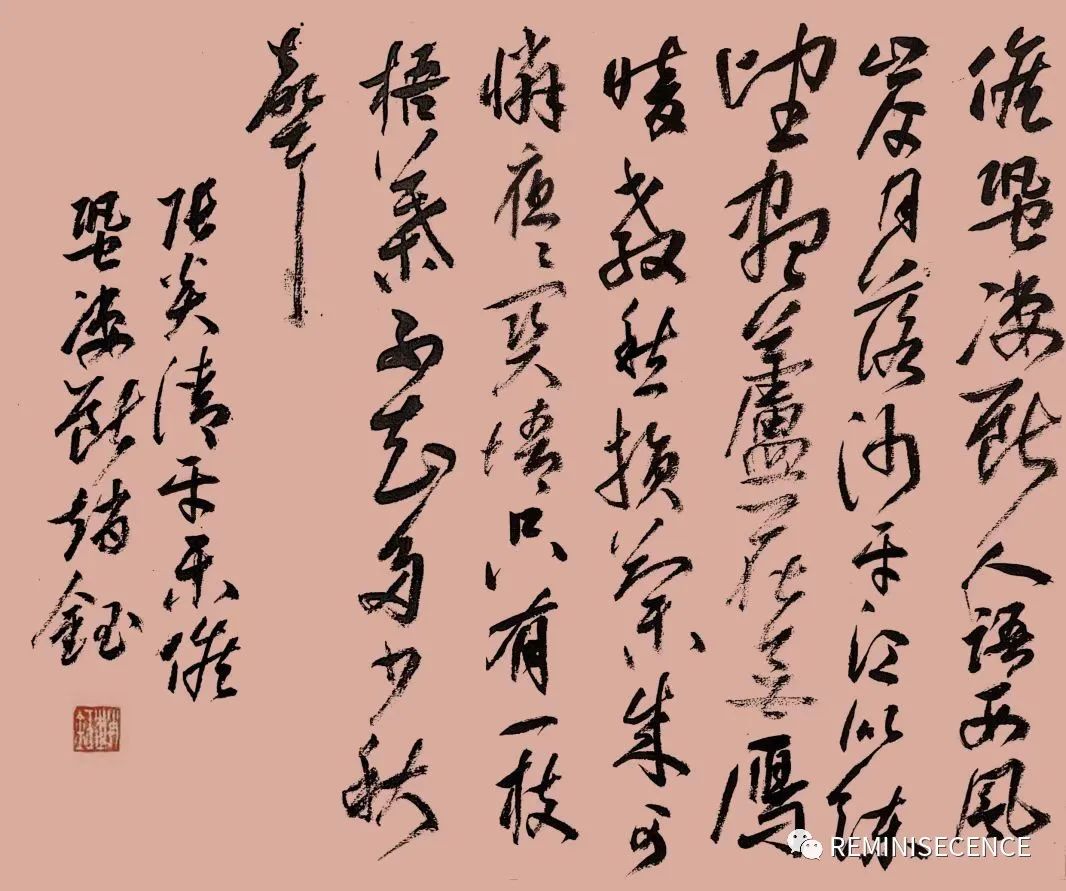 候蛩淒斷人語西風
岸月落沙平江似練
望盡蘆花無鴈
暗教愁損蘭成可
憐夜〻關情只有一枝
梧葉不知多少秋
聲
張炎清平樂候
蛩淒斷趙鈺
REMINISECENCE